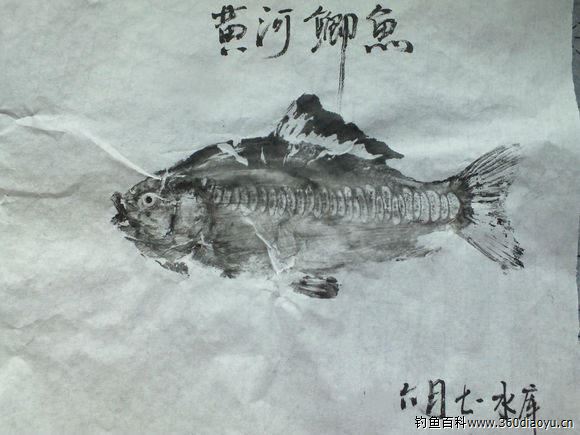 黄河鲫魚
六月七·水库
钓鱼百科www.360diaoyu.cn